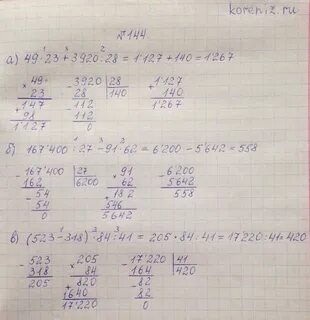 koreniz.ru
№144
а) 49·23+3920:28=1'127+140=1'267
49
× 23
147
+ 98
1'127
3920 | 28
- 28 140
112
- 112
0
1'127
+ 140
1'267
б) 167'400:27-91·62=6'200-5'642=558
167'400 | 27
- 162 6200
54
- 54
0
91
× 62
182
+ 546
5642
6'200
- 5'642
558
в) (523-318)·84:41=205·84:41=17'220:41=420
523
- 318
205
205
× 84
820
+ 1640
17'220
17'220 | 41
- 164 420
82
- 82
0